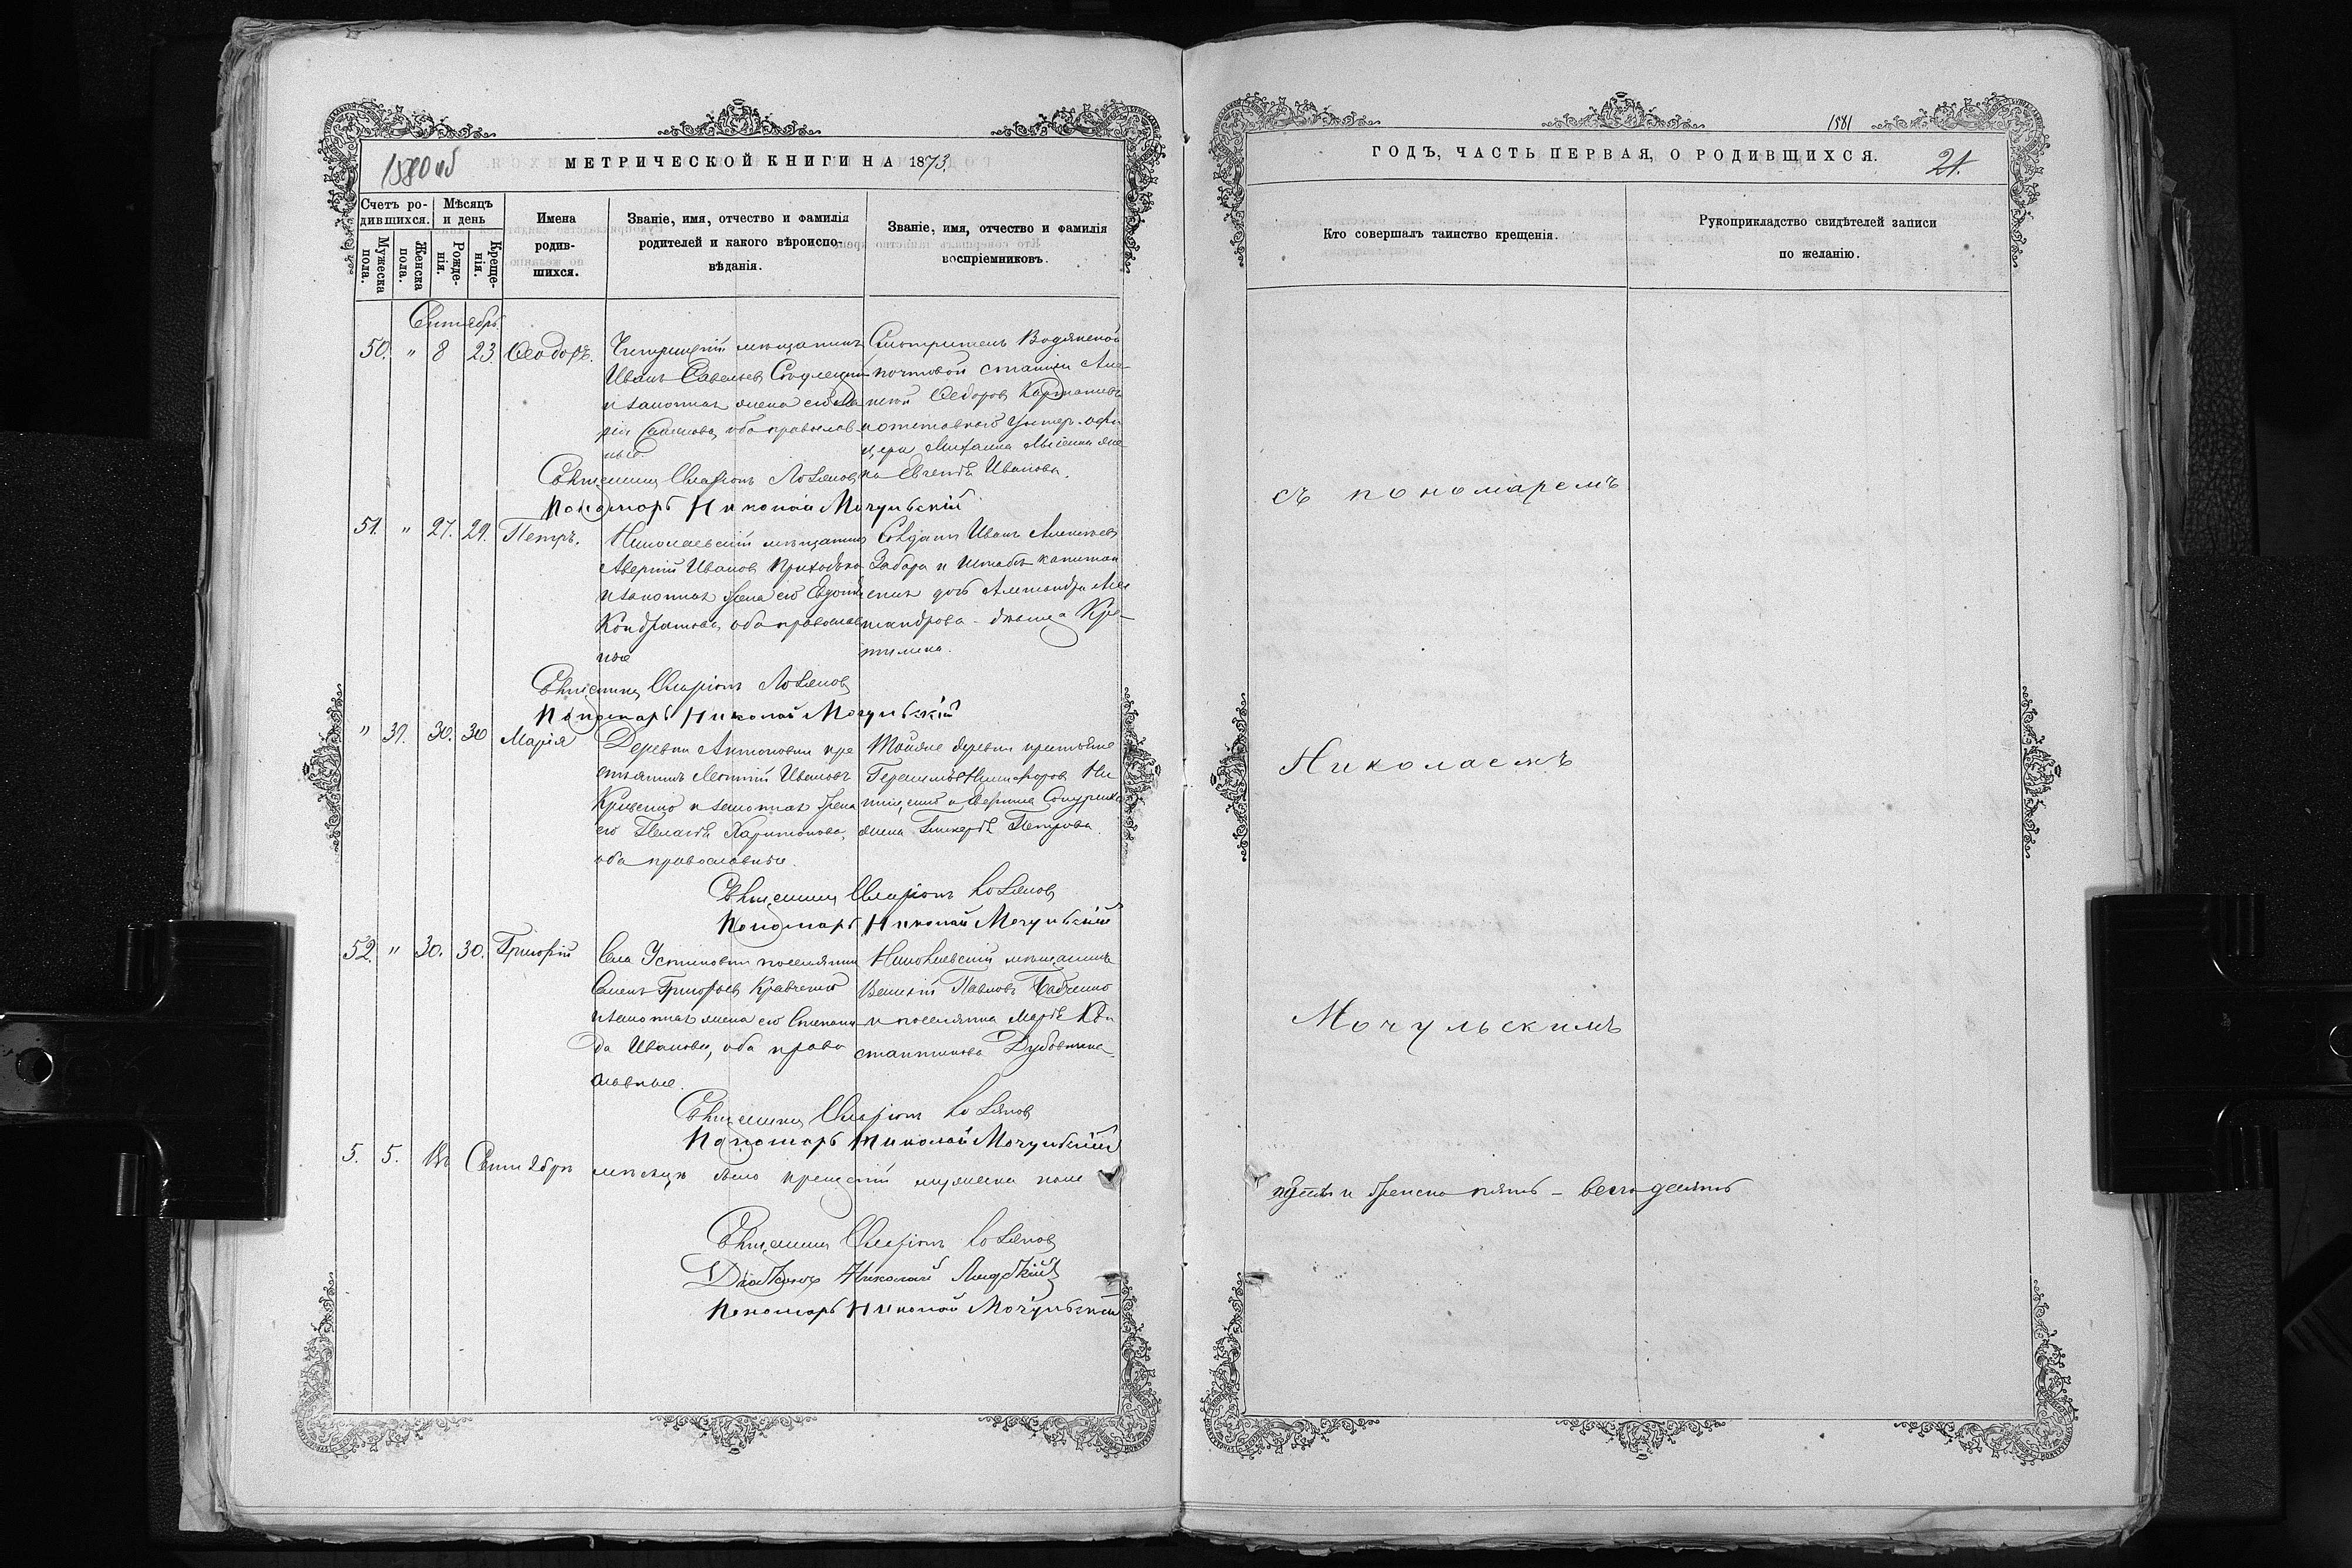 1580 об
МЕТРИЧЕСКОЙ КНИГИ НА 1873.
Счетъ ро-
дившихся.
Мѣсяцъ
и день
Мужеска
пола.
Женска
пола.
Рожде-
нія.
Креще-
нія.
Имена
родив-
шихся.
Званіе, имя, отчество и фамилія
родителей и какого вѣроиспо-
вѣданія.
Званіе, имя, отчество и фамилія
воспріемниковъ.
Сентябрь
50. " 8 23. Ѳеодоръ.
мѣщанинъ
Иванъ Савельевъ
и законная жена его
оба православ-
ные.
Смотритель Водяной
почтовой станціи Але-
Ѳедоровъ
отставного Унтер-офи-
цера Михаила жена
Евгенія Иванова.
Священникъ Иларіонъ Лобановъ
Пономарь Николай Мочульскій
51. " 27. 29. Петръ.
Николаевскій мѣщанинъ
Аверкій Ивановъ Приходько
и законная жена его Евдокія
Кондратова, оба православ-
ные
Солдатъ Иванъ Алексѣевъ
Забара и Штабсъ-капитан
дочь Александра Але
ксандрова девица
Священникъ Иларіонъ Лобановъ
Пономарь Николай Мочульскій
" 31. 30. 30 Марія
Деревни Антоновки кре
стьянинъ Леонтій Ивановъ
Кривенко и законная жена
его Пелагія Харитонова,
оба православные.
Тойже деревни крестьяне
Герасимъ Никифоровъ Ни
и
жена Гликерія Петрова.
Священникъ Иларіонъ Лобановъ
Пономарь Николай Мочульскій
52. " 30. 30. Григорій
Села Устиновки поселянинъ
Семенъ Григорьевъ Кравченко
и законная жена его Степани
да Иванова, оба право
славные.
Николаевскій мѣщанинъ
Василій Павловъ Бабченко
и поселянка Марія Кон
стантинова
Священникъ Иларіонъ Лобановъ
Пономарь Николай Мочульскій
5. 5. Въ Сентябрѣ мѣсяцѣ было крещеній мужеска пола
Священникъ Иларіонъ Лобановъ
Діаконъ Николай
Пономарь Николай Мочульскій
1581
ГОДЪ, ЧАСТЬ ПЕРВАЯ, О РОДИВШИХСЯ.
21.
Кто совершалъ таинство крещенія.
Рукоприкладство свидѣтелей записи
по желанію.
съ пономаремъ
Николаемъ
Мочульскимъ
пять и женска пять - всего десять